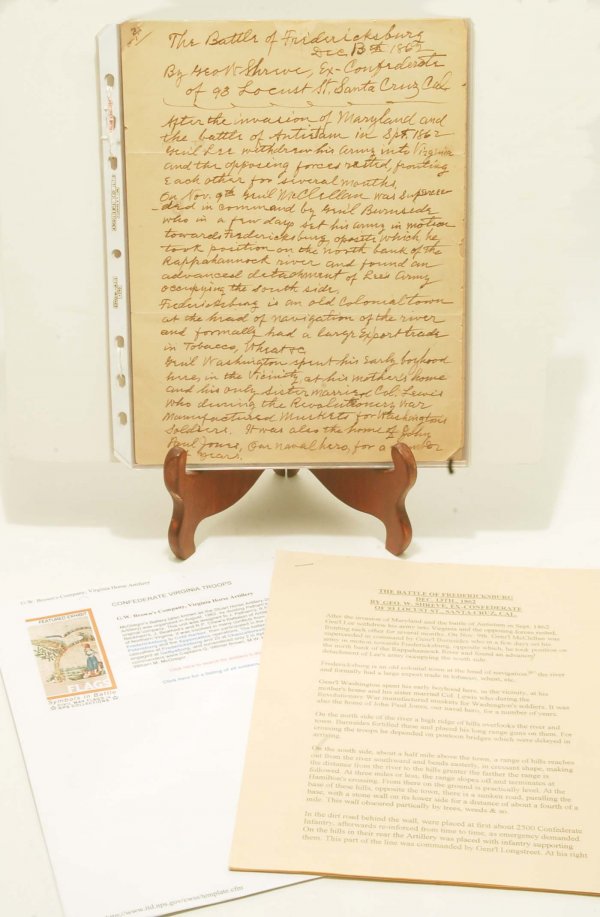 The Battle of Fredericksburg
Dec 13th 1862
By Geo W. Shreve, Ex-Confederate
of 93 Locust St. Santa Cruz Cal
After the invasion of Maryland and
the battle of Antistam in Spt. 1862
Genl Lee withdrew his army into Virginia
and the opposing forces rested, fronting
Each other for several months.
On Nov. 9th Genl McClellan was superse-
-ded in command by Genl Burnside
who in a few days set his army in motion
towards Fredericksburg, oposite which he
took position on the north bank of the
Rappahannock river and found an
advanced detachment of Lees Army
occupying the south side.
Fredericksburg is an old Colonial town
at the head of navigation of the river
and formally had a large Export trade
in Tobacco, Wheat &c
Genl Washington spent his Early boyhood
here, in the vicinity, at his mother's home
and his only sister married Col. Lewis
who during the Revolutionary War
manufactured muskets for Washingtons
Soldiers. It was also the home of John
Paul Jones, our naval hero, for a number
years.
G.W. Brown's Company, Virginia Horse Artillery
CONFEDERATE VIRGINIA TROOPS
G.W. Brown's Company, Virginia Horse Artillery
FEATURED EXHIBIT
FLAGS
Symbols in Battle
William M. McGregor.
THE BATTLE OF FREDERICKSBURG
DEC. 13TH, 1862
BY GEO. W. SHREVE, EX-CONFEDERATE
OF 93 LOCUST ST., SANTA CRUZ, CAL
After the invasion of Maryland and the battle of Antistam in Sept. 1862
Gen'l Lee withdrew his army into Virginia and the opposing forces rested,
fronting each other for several months. On Nov. 9th Gen'l McClellan was
superseded in command by Gen'l Burnside who in a few days set his
army in motion towards Fredericksburg, opposite which, he took position on
the north bank of the Rappahannock River and found an advanced
detachment of Lee's army occupying the south side.
Fredericksburg is an old colonial town at the head of navigation of the river
and formally had a large export trade in tobacco, wheat, etc.
Gen'l Washington spent his early boyhood here, in the vicinity, at his
mother's home and his sister married Col. Lewis who during the
Revolutionary War manufactured muskets for Washington's soldiers. It was
also the home of John Paul Jones, our naval hero, for a number of years.
On the north side of the river a high ridge of hills overlooks the river and
town. Burnside fortified these and placed his long range guns on them. For
crossing the troops he depended on pontoon bridges which were delayed in
arriving.
On the south side, about a half mile above the town, a range of hills reaches
out from the river southward and bends easterly, in crescent shape, making
the distance from the river to the hills greater the farther the range is
followed. At three miles or less, the range slopes off and terminates at
Hamilton's crossing. From there on the ground is practically level. At the
base of these hills, opposite the town, there is a sunken road, paralling the
base, with a stone wall on its lower side for a distance of about a fourth of a
mile. This wall obscured partically by trees, weeds & so.
In the dirt road behind the wall, were placed at first about 2500 Confederate
Infantry, afterwards re-inforced from time to time, as emergency demanded.
On the hills in their rear the Artillery was placed with infantry supporting
them. This part of the line was commanded by Gen'l Longstreet. At his right